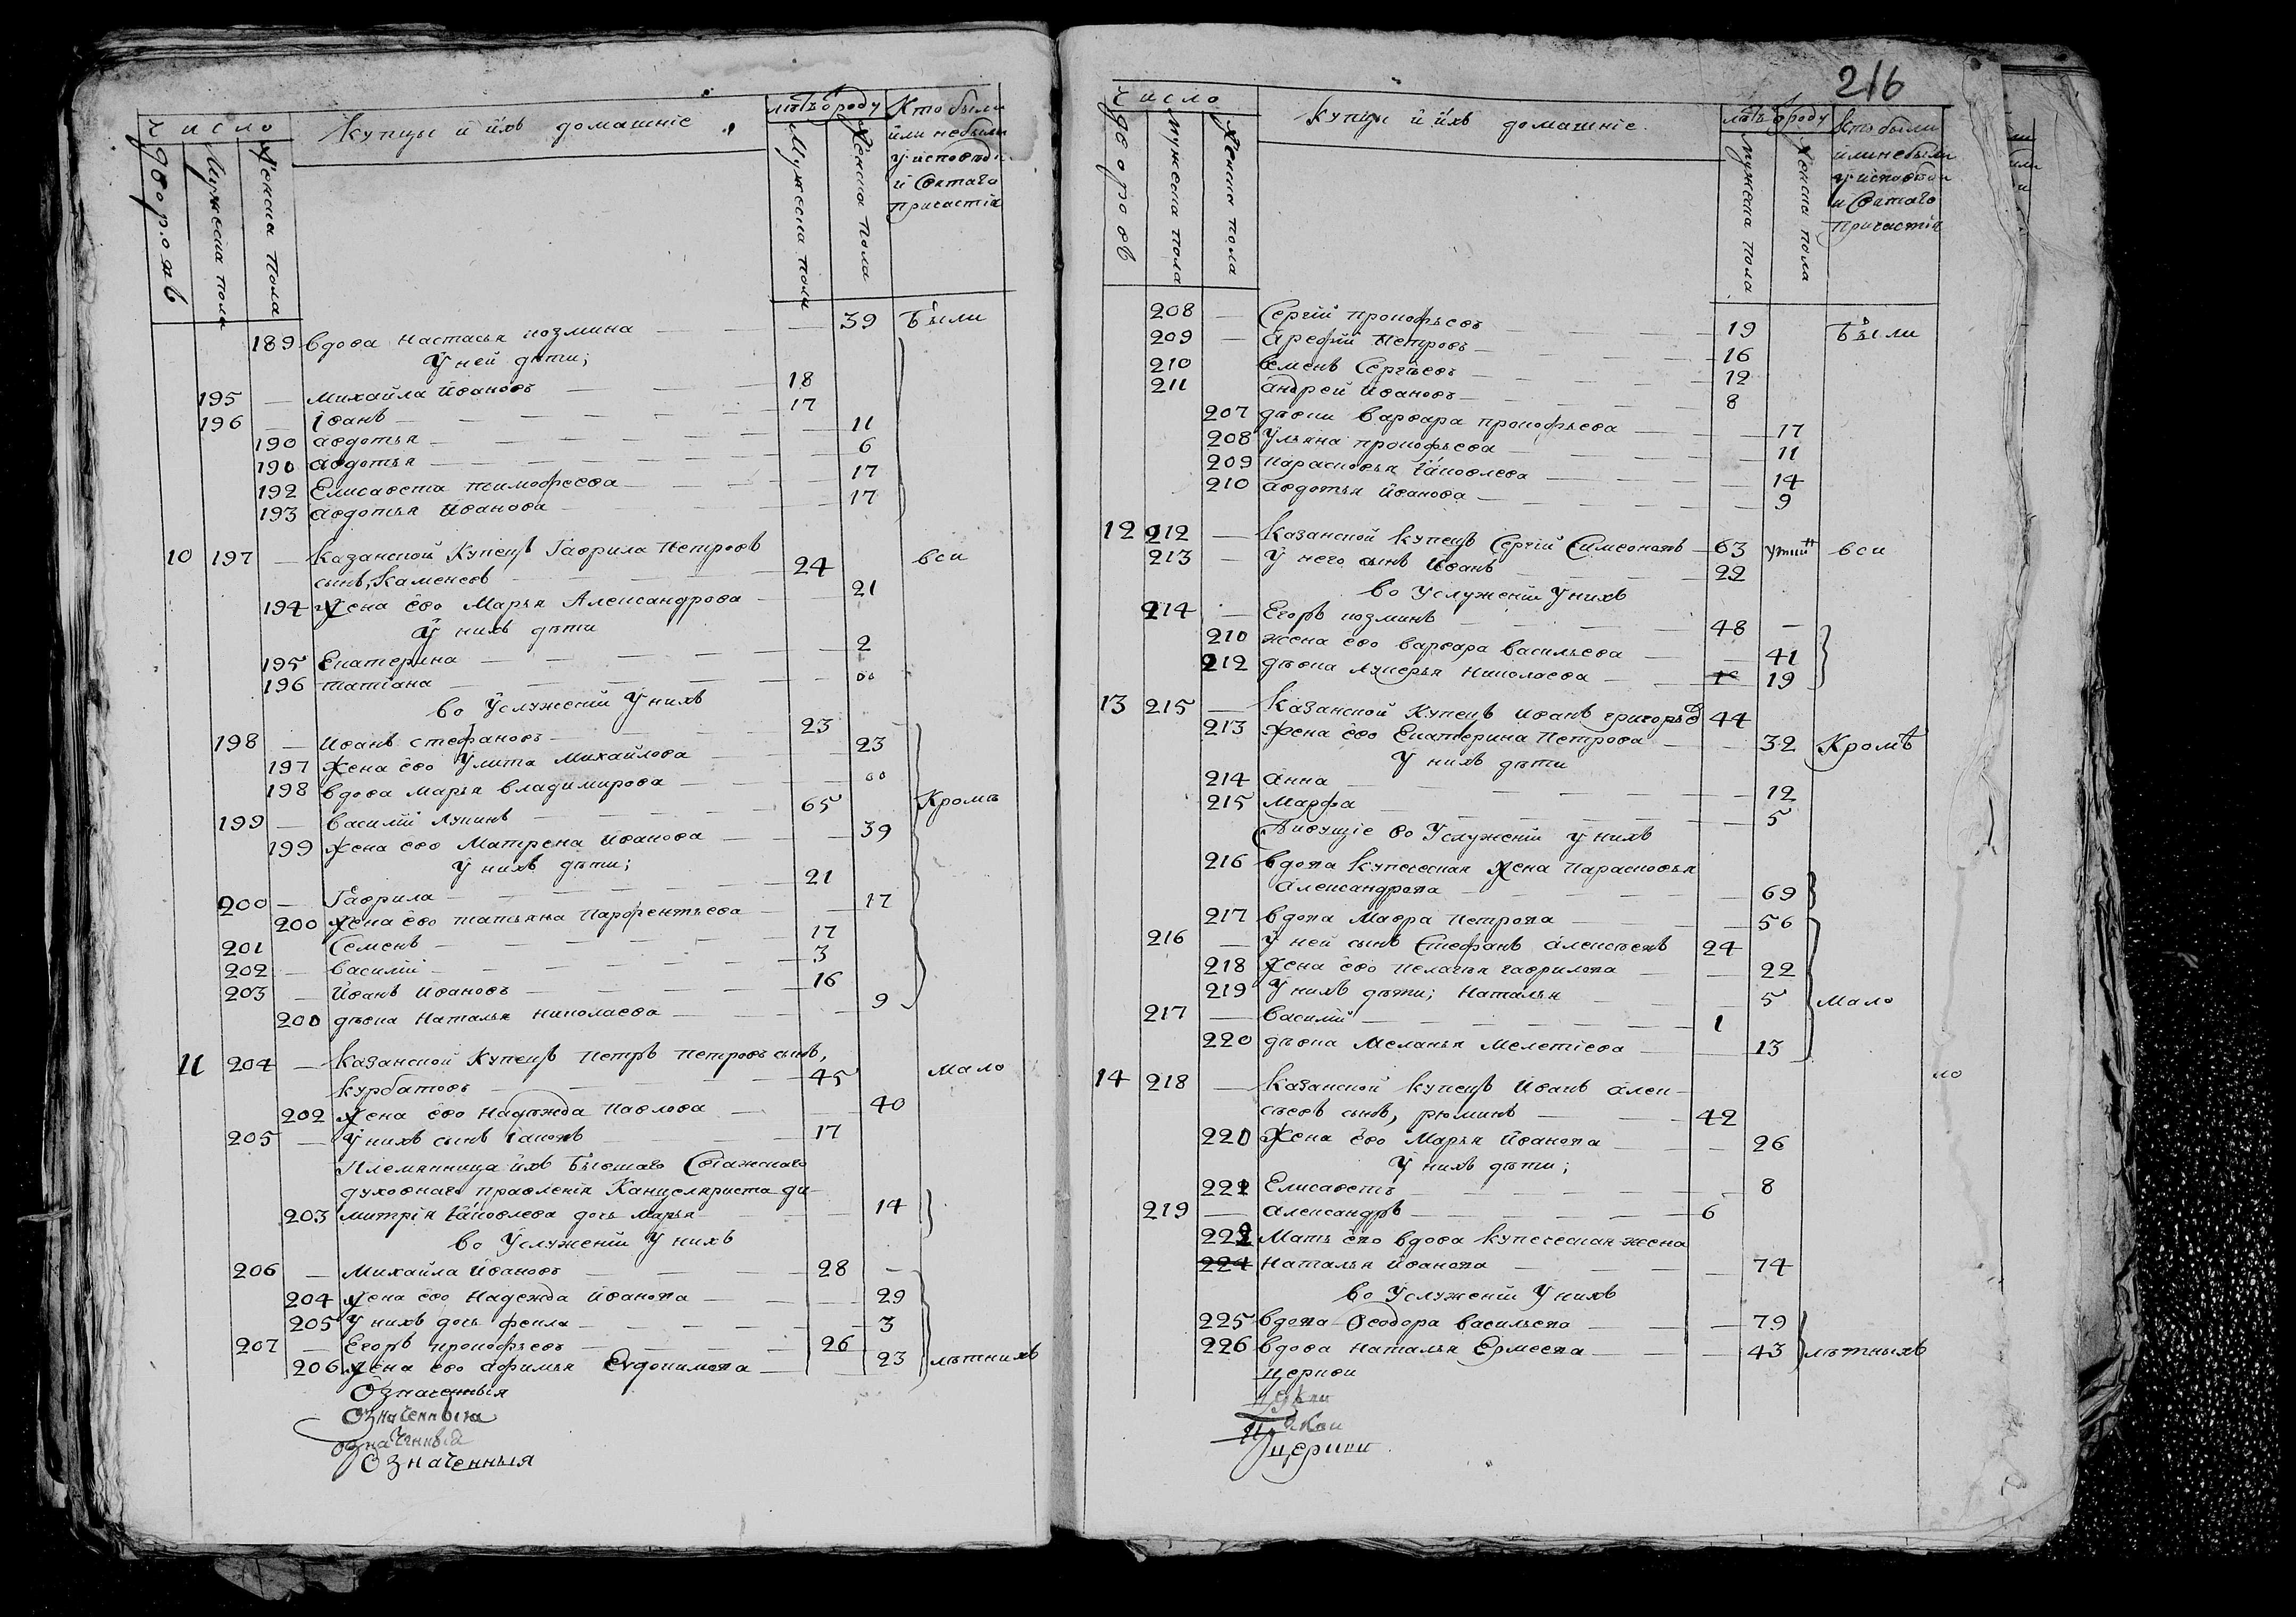 число
дворовъ
Мужеска пола
Женска пола
Купцы и ихъ домашніе
лѣтъ ѿроду
Мужеска пола
Женска пола
Кто были
или небыли
у исповѣди
и святаго
причастія
189 вдова Настасья козмина — 39 Были
у ней дѣти;
195 — Михайла Ивановъ — 18
196 — Іванъ — 17
190 авдотья — 11
190 авдотья — 6
192 Елисавета тимофеева — 17
193 авдотья Иванова — 17
10 197 — Казанской Купецъ Гаврила Петровъ вси
сынъ, Каменевъ — 24
194 Жена ево Марья Александрова — 21
у нихъ дѣти
195 Екатерина — 2
196 татіана — 00
во Услуженіи у нихъ
198 — Иванъ стефановъ — 23
197 Жена ево Улита Михайлова — 23
198 вдова Марья владимирова — 00
199 — василій лукинъ — 65 Кромѣ
199 Жена ево Матрена Иванова — 39
у нихъ дѣти;
200 — Гаврила — 21
200 Жена ево татьяна Парфентьева — 17
201 Семенъ — 17
202 — василій — 3
203 — Иванъ Ивановъ — 16
200 дѣвка Наталья николаева — 9
11 204 — Казанской Купецъ петръ петровъ сынъ,
Курбатовъ — 45 мало
202 Жена ево Надѣжда Павлова — 40
205 — у нихъ сынъ Іаковъ — 17
Племянница ихъ бывшаго Свіажскаго
духовнаго правленія Канцеляриста ди-
203 митрія Іаковлева дочь Марья — 14
во Услуженіи у нихъ
206 — Михайла Ивановъ — 28 —
204 Жена ево Надежда Иванова — 29
205 у нихъ дочь фекла — 3
207 — Егоръ прокофьевъ — 26
206 Жена ево афимья Евдокимова — 23 лѣтнихъ
Означенныя
Означенныя
означенныя
Означенныя
216
число
дворовъ
мужеска пола
Женска пола
Купцы и ихъ домашніе
лѣтъ ѿроду
мужеска пола
Женска пола
Кто были
или небыли
у исповѣди
и святаго
причастія
208 — Сергій прокофьевъ — 19 Были
209 — арефій Петровъ — 16
210 семенъ Сергѣевъ — 12
211 андрей Ивановъ — 8
207 дѣвки варвара прокофьева — 17
208 Ульяна прокофьева — 11
209 парасковья Іаковлева — 14
210 авдотья Иванова — 9
12 212 — Казанской купецъ Сергій Симеоновъ — 63 вси
213 — у него сынъ Иванъ — 22
во Услуженіи у нихъ
214 — Егоръ козминъ — 48 —
210 жена ево варвара васильева — 41
212 дѣвка лукерья николаева — 19
13 215 — Казанской Купецъ Иванъ григорьевъ 44
213 Жена ево Екатерина Петрова — 32 Кромѣ
у нихъ дѣти
214 анна — 12
215 Марфа — 5
Живущіе во Услуженіи у нихъ
216 вдова купеческая Жена Парасковья
александрова — 69
217 вдова Мавра Петрова — 56
216 — у ней сынъ Стефанъ алексѣевъ 24
218 Жена ево Пелагея гаврилова — 22
219 у нихъ дѣти; Наталья — 5 мало
217 — василій — 1
220 дѣвка Меланья Мелетіева — 13
14 218 — Казанской Купецъ Иванъ алек- ло
сѣевъ сынъ, рюминъ — 42
220 Жена ево Марья Иванова — 26
у нихъ дѣти;
222 Елисаветъ — 8
219 — александръ — 6
222 Мать ево вдова купеческая жена
224 Наталья Иванова — 74
во Услуженіи у нихъ
225 вдова Ѳеодора васильева — 79
226 вдова Наталья Ермеева — 43 лѣтныхъ
церкви
церкви